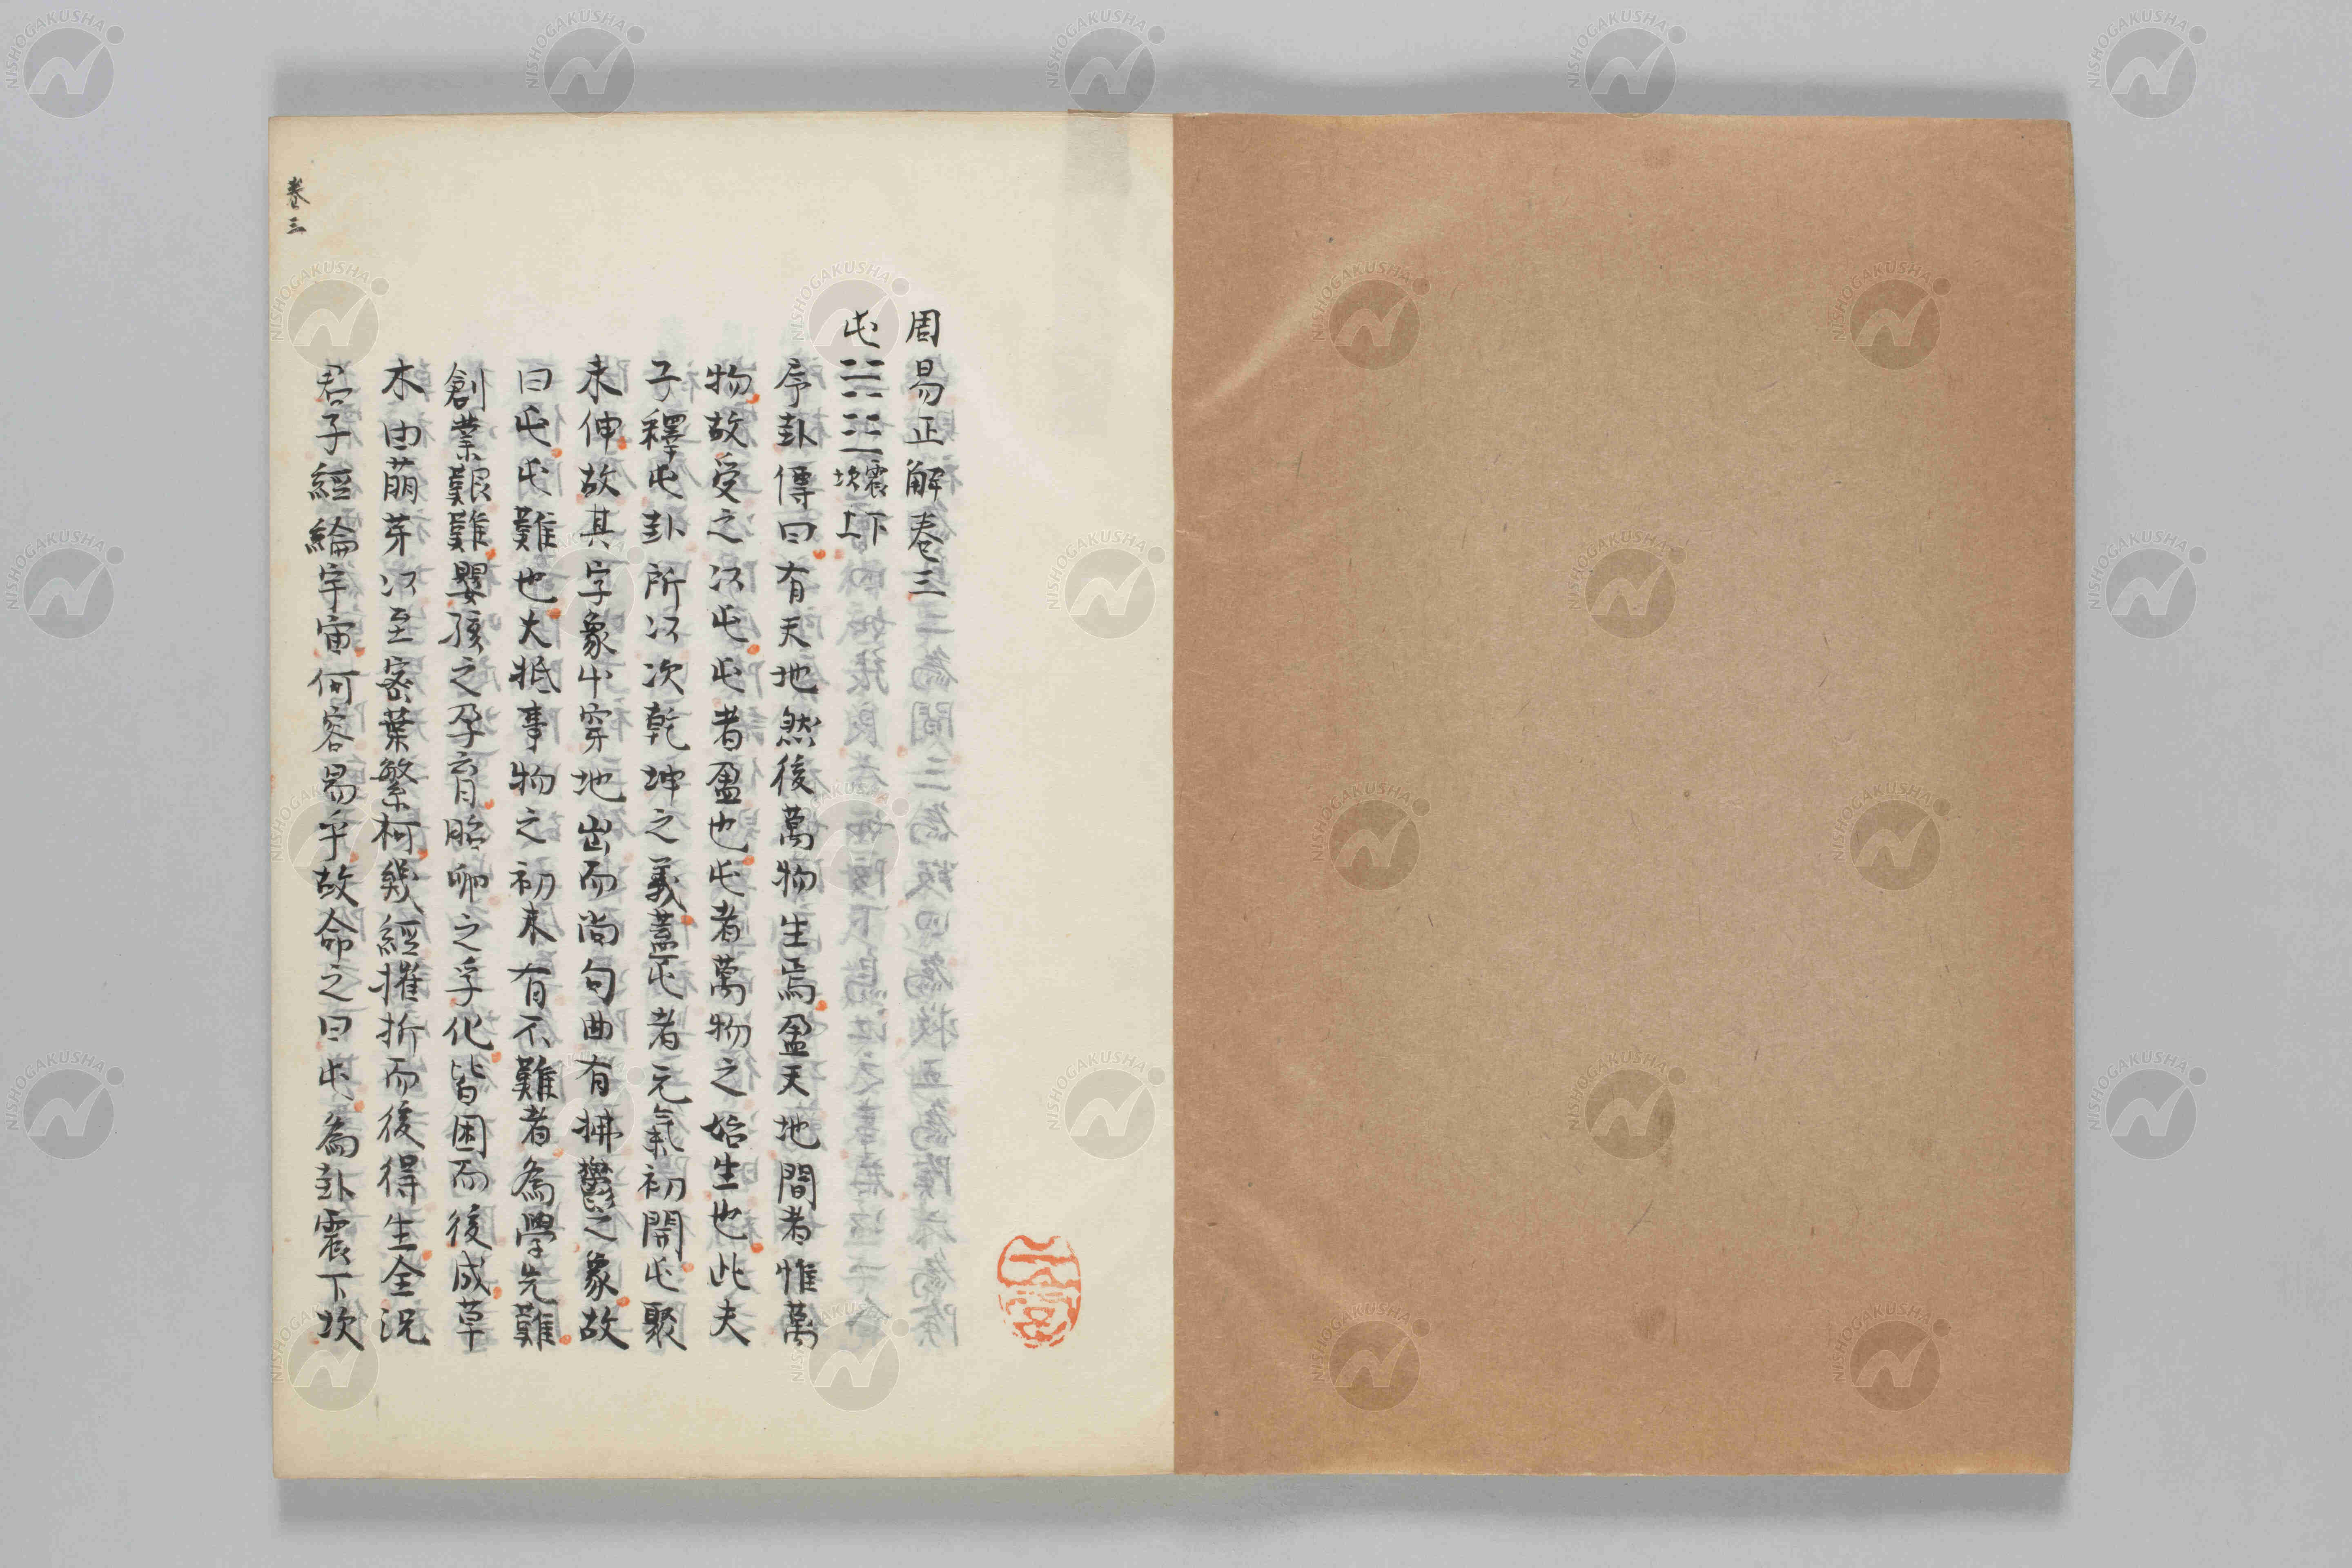 周易正解卷三
屯䷂震下坎上
序卦傳曰有天地然後萬物生焉盈天地間者惟萬
物故受之以屯屯者盈也屯者萬物之始生也此夫
子釋屯卦所以次乾坤之義蓋屯者元氣初開屯聚
未伸故其字象屮穿地出而尚句曲有拂鬱之象故
曰屯屯難也大抵事物之初未有不難者為學先難
創業艱難嬰孩之孕育胎卵之孚化皆困而後成草
木由萠芽以至密葉繁柯幾經摧折而後得生全況
君子經綸宇宙何容易乎故命之曰屯為卦震下坎
卷三
NISHOGAKUSHA